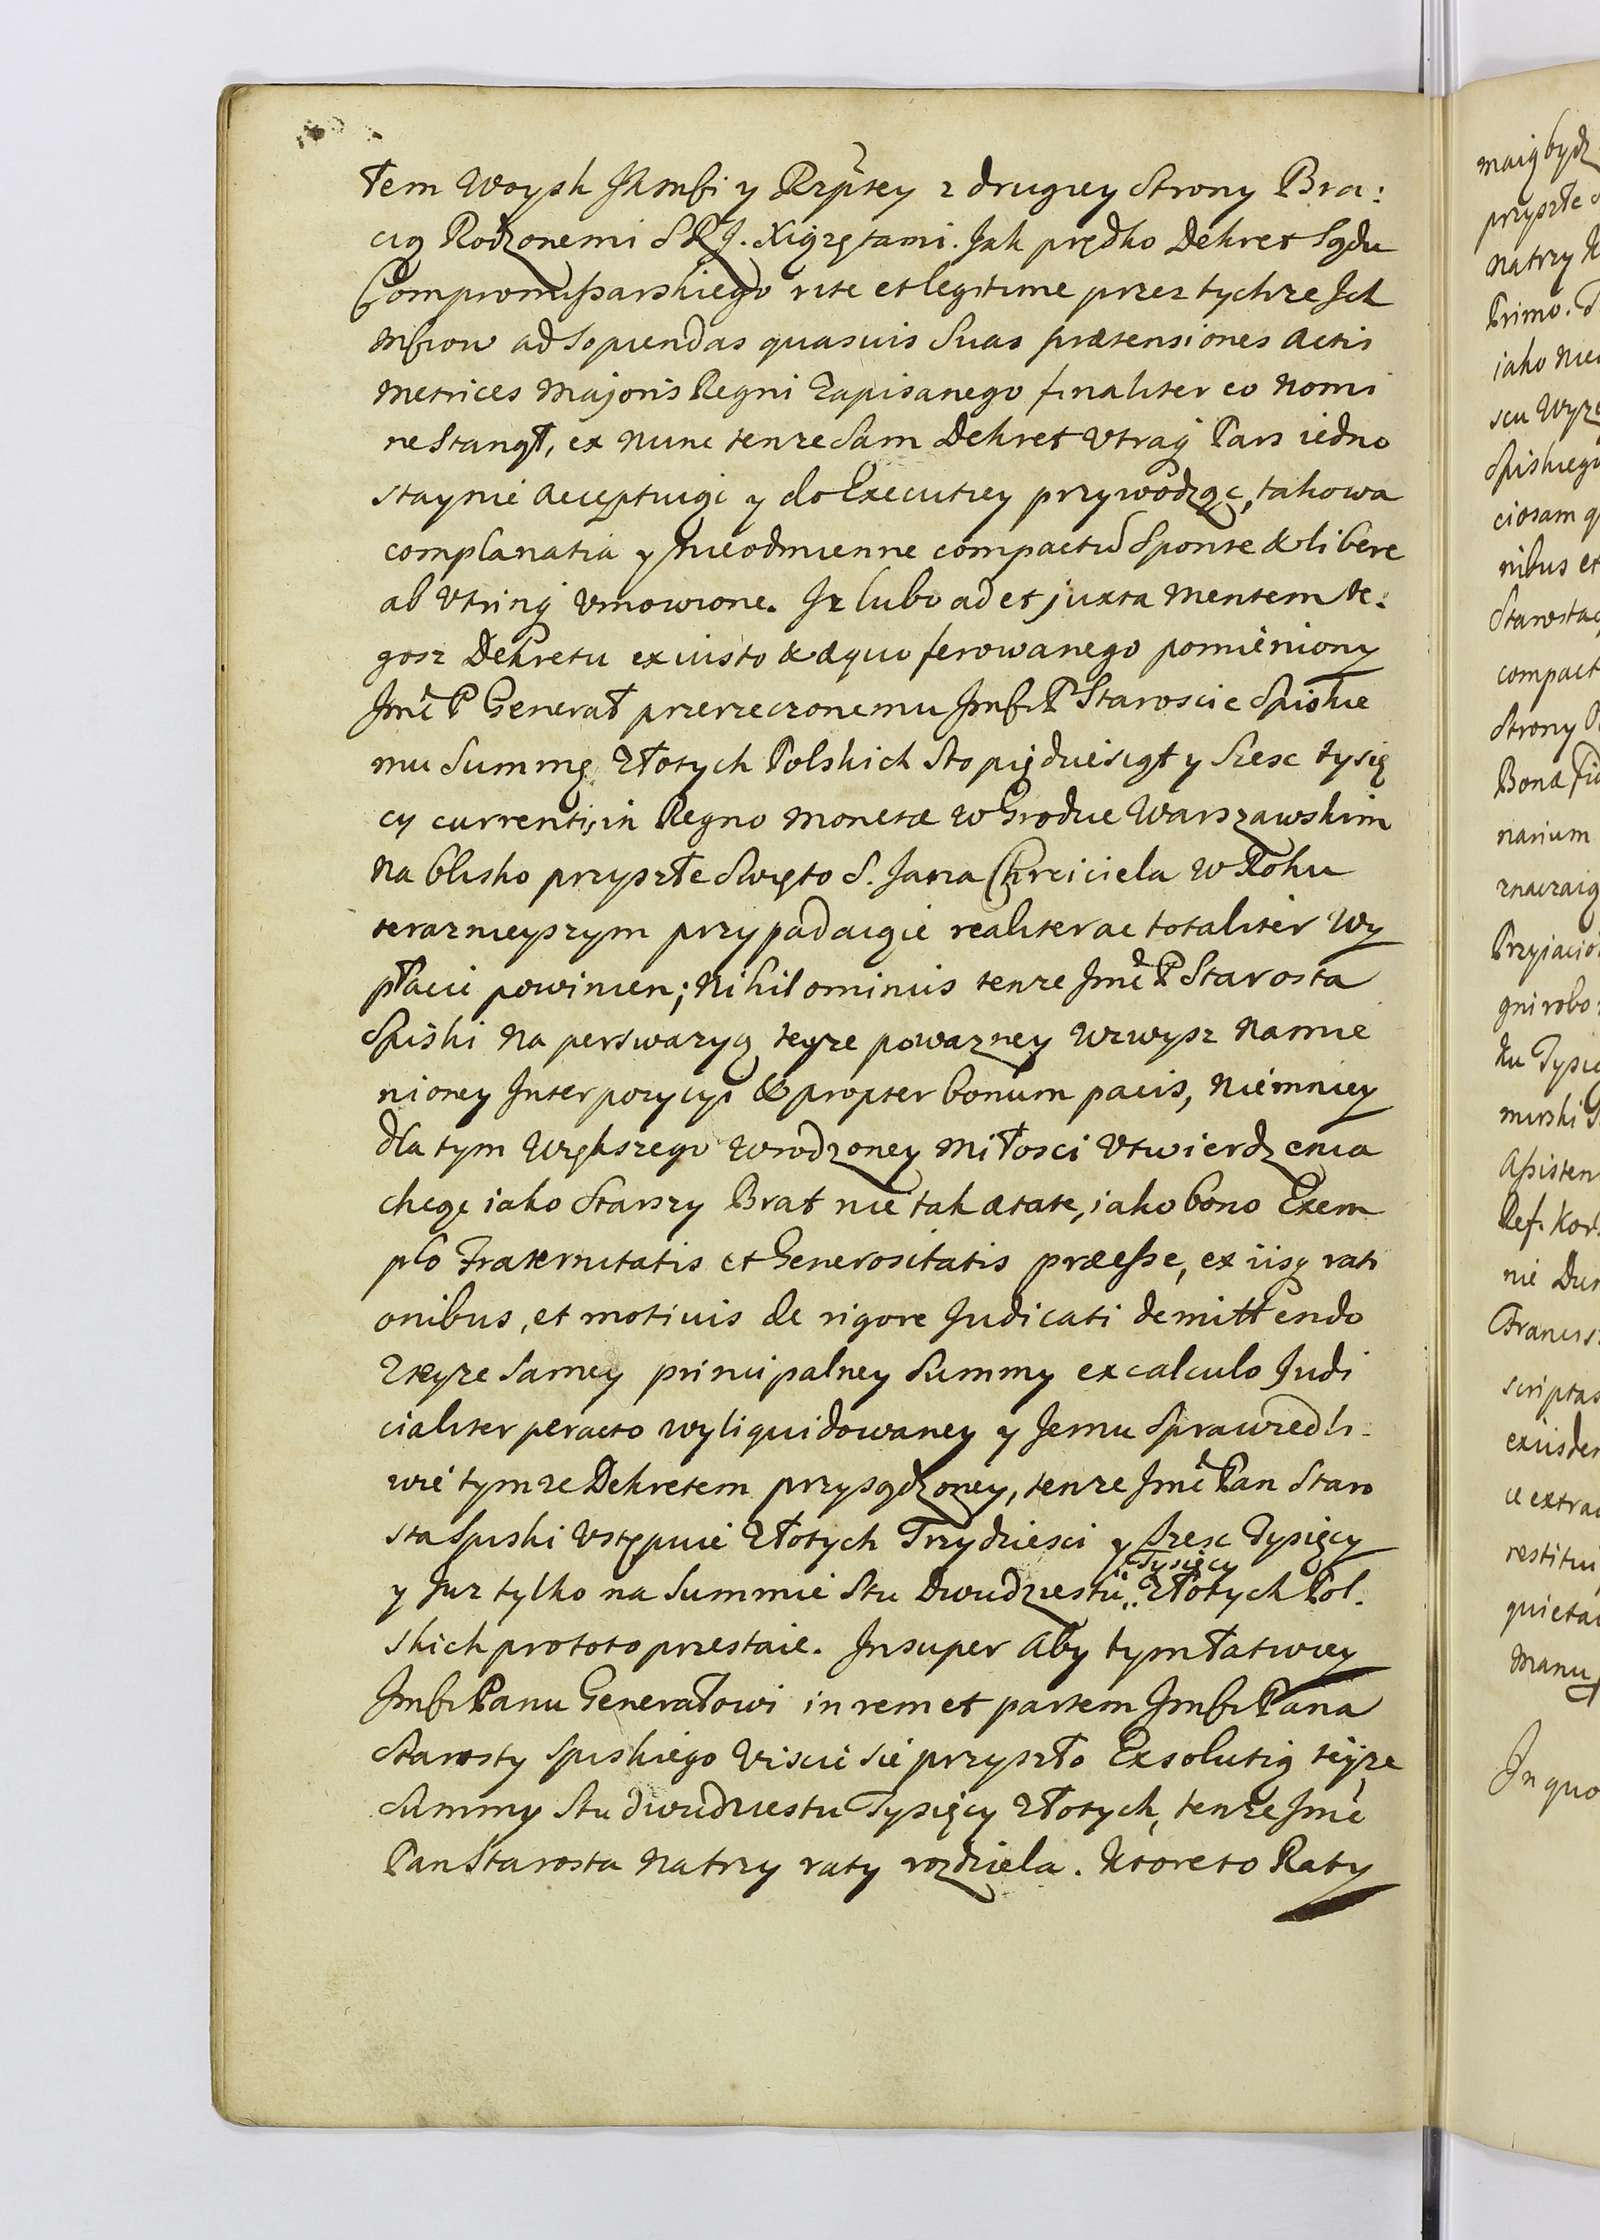 łem Woysk JKmści y Rzptey z drugiey Strony Bra:
cią Rodzonemi S.R.J. Xiązętami. Jak prędko Dekret Sądu
Compromissarskiego rite et legitime przez tychze Ich
Mściow ad Sopiendas quasuis Suas prætensiones Actis
Metrices Majoris Regni Zapisanego finaliter eo Nomi
ne Stanął, ex Nunc tenze Sam Dekret Vtraq Pars iedno
staynie Acceptuiąc y do Executiey przywodząc, takowa
complanatia y nieodmienne compactu Sponte & libere
ab Vtrinq Vmowione. Iz lubo ad et juxta Mentem te:
gosz Dekretu ex iusto & æquo ferowanego pomieniony
Jmć P Generał przerzeczonemu Jmści P Staroscie Spiskie
mu Summę Złotych Polskich Sto pięćdziesiąt y Szesc tysię
cy currenti in Regno Moneta W Grodzie Warszawskim
Na blisko przyszłe Swięto S. Jana Chrciciela W Roku
teraznieyszym przypadaiące realiter ac totaliter Wy
płacic powinien; Nihilominus tenze Jmć P Starosta
Spiski Na perswazyą teyze powazney Wzwysz Namie
nioney Interpozycyi & propter bonum pacis, Niemniey
dla tym Większego Wrodzoney Miłosci Vtwierdzenia
chcąc iako Starszy Brat nie tak ætate, iako bono Exem
plo Fraternitatis et Generositatis præesse, ex iisq rati
onibus, et motiuis de rigore Judicati demittendo
Zteyze Samey principalney Summy ex calculo Judi
cialiter peracto wyliquidowaney y Jemu Sprawiedli:
wie tymze Dekretem przysądzoney, tenze Jmć Pan Staro
sta Spiski Vstępuie Złotych Trzydziesci y Szesc Tysięcy
y Juz tylko na Summie Stu Dwudziestu Tysięcy Złotych Pol.
skich pro toto przestaie. Insuper Aby tym łatwiey
Jmści Panu Generałowi in rem et partem Jmści Pana
Starosty Spiskiego Viscic sie przyszło Exsolutią teyze
Summy Stu dwudziestu Tysięcy Złotych, tenze Jmć
Pan Starosta Na trzy raty rozdziela. Ktore to Raty